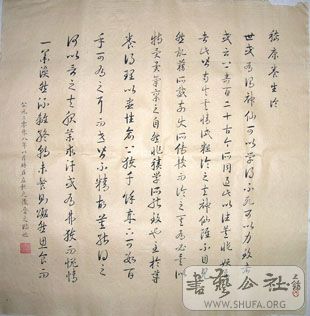 嵇康養生論
世或有謂神仙可以學得不死可以力致者
或云上壽百二十古今所同過此以往莫非妖妄
者此皆兩失其情請試粗論之夫神仙雖不目見
然記籍所載前史所傳較而論之其有必矣似
特受異氣稟之自然非積學所能致也至於導
養得理以盡性命上獲千餘歲下可數百
年可有之耳而世皆不精故莫能得之
何以言之夫服藥求汗或有弗獲而愧情
一集渙然流離終朝未餐則囂然思食而
公元二零零八年八月
書藝公社
WWW.SHUFA.ORG